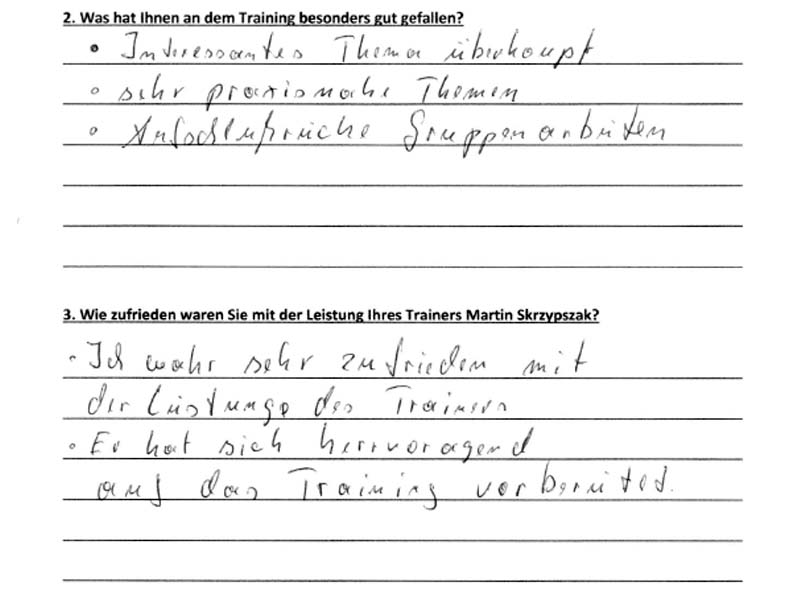 2. Was hat Ihnen an dem Training besonders gut gefallen?
• Interessantes Thema überhaupt
◦ sehr praxisnahe Themen
◦ Aufschlußreiche Gruppenarbeiten
3. Wie zufrieden waren Sie mit der Leistung Ihres Trainers Martin Skrzypszak?
• Ich wahr sehr zufrieden mit
der Leistunge des Trainers
• Er hat sich herrvoragend
auf das Training vorbereitet.